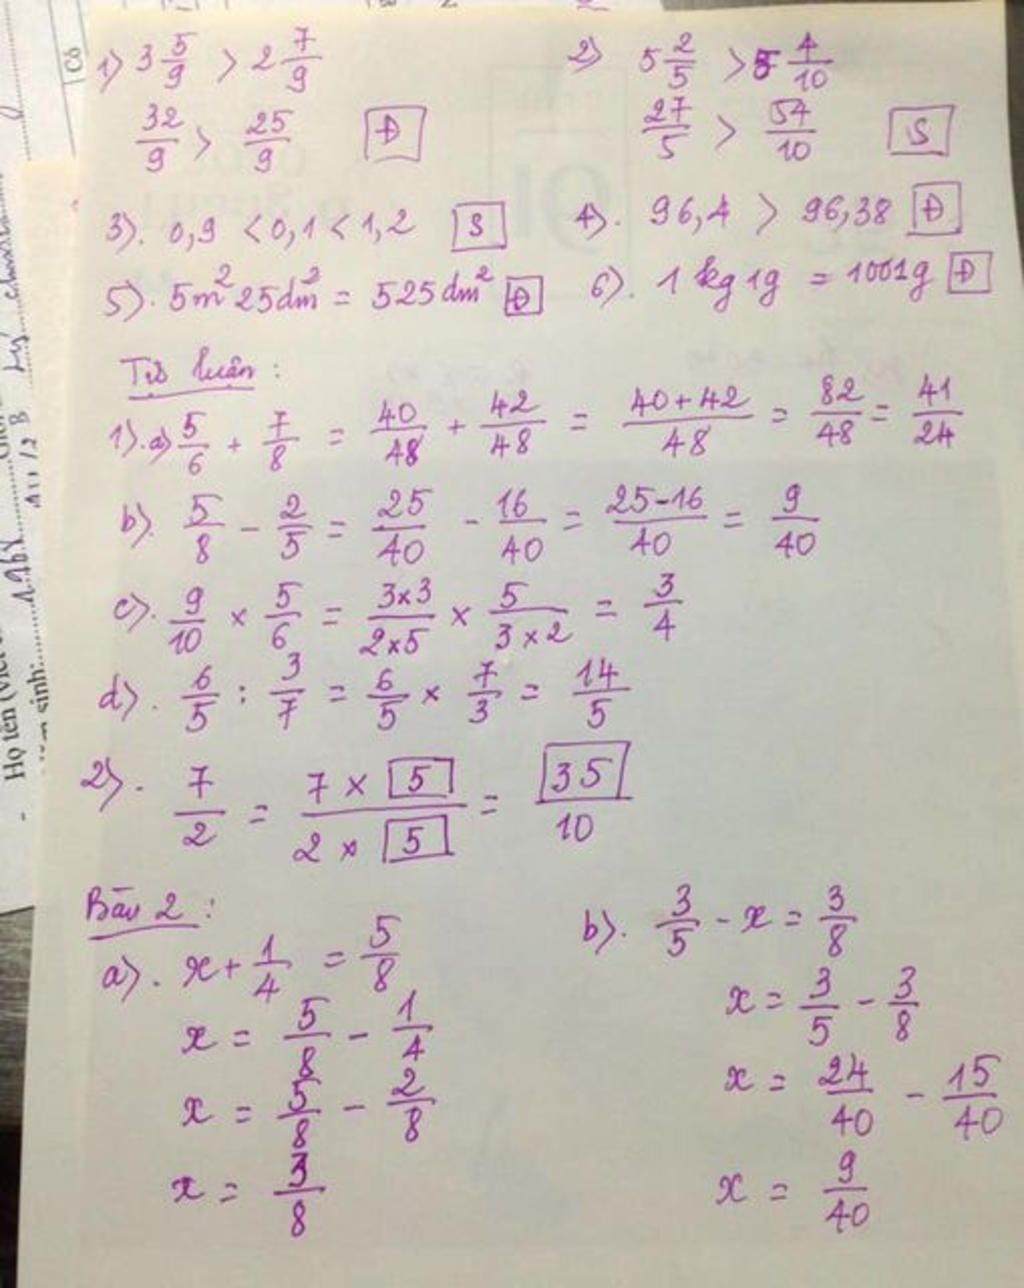 1) 3 5/9 > 2 7/9
32/9 > 25/9 Đ
2) 5 2/5 > 5 4/10
27/5 > 54/10 S
3). 0,9 < 0,1 < 1,2 S
4). 96,4 > 96,38 Đ
5). 5m² 25dm² = 525dm² Đ
6). 1 kg 1g = 1001g Đ
Tự luận :
1). a) 5/6 + 7/8 = 40/48 + 42/48 = 40+42/48 = 82/48 = 41/24
b). 5/8 - 2/5 = 25/40 - 16/40 = 25-16/40 = 9/40
c). 9/10 × 5/6 = 3×3/2×5 × 5/3×2 = 3/4
d). 6/5 : 3/7 = 6/5 × 7/3 = 14/5
2). 7/2 = 7 × 5/2 × 5 = 35/10
Bài 2 :
a). x + 1/4 = 5/8
x = 5/8 - 1/4
x = 5/8 - 2/8
x = 3/8
b). 3/5 - x = 3/8
x = 3/5 - 3/8
x = 24/40 - 15/40
x = 9/40
Họ tên
sinh: